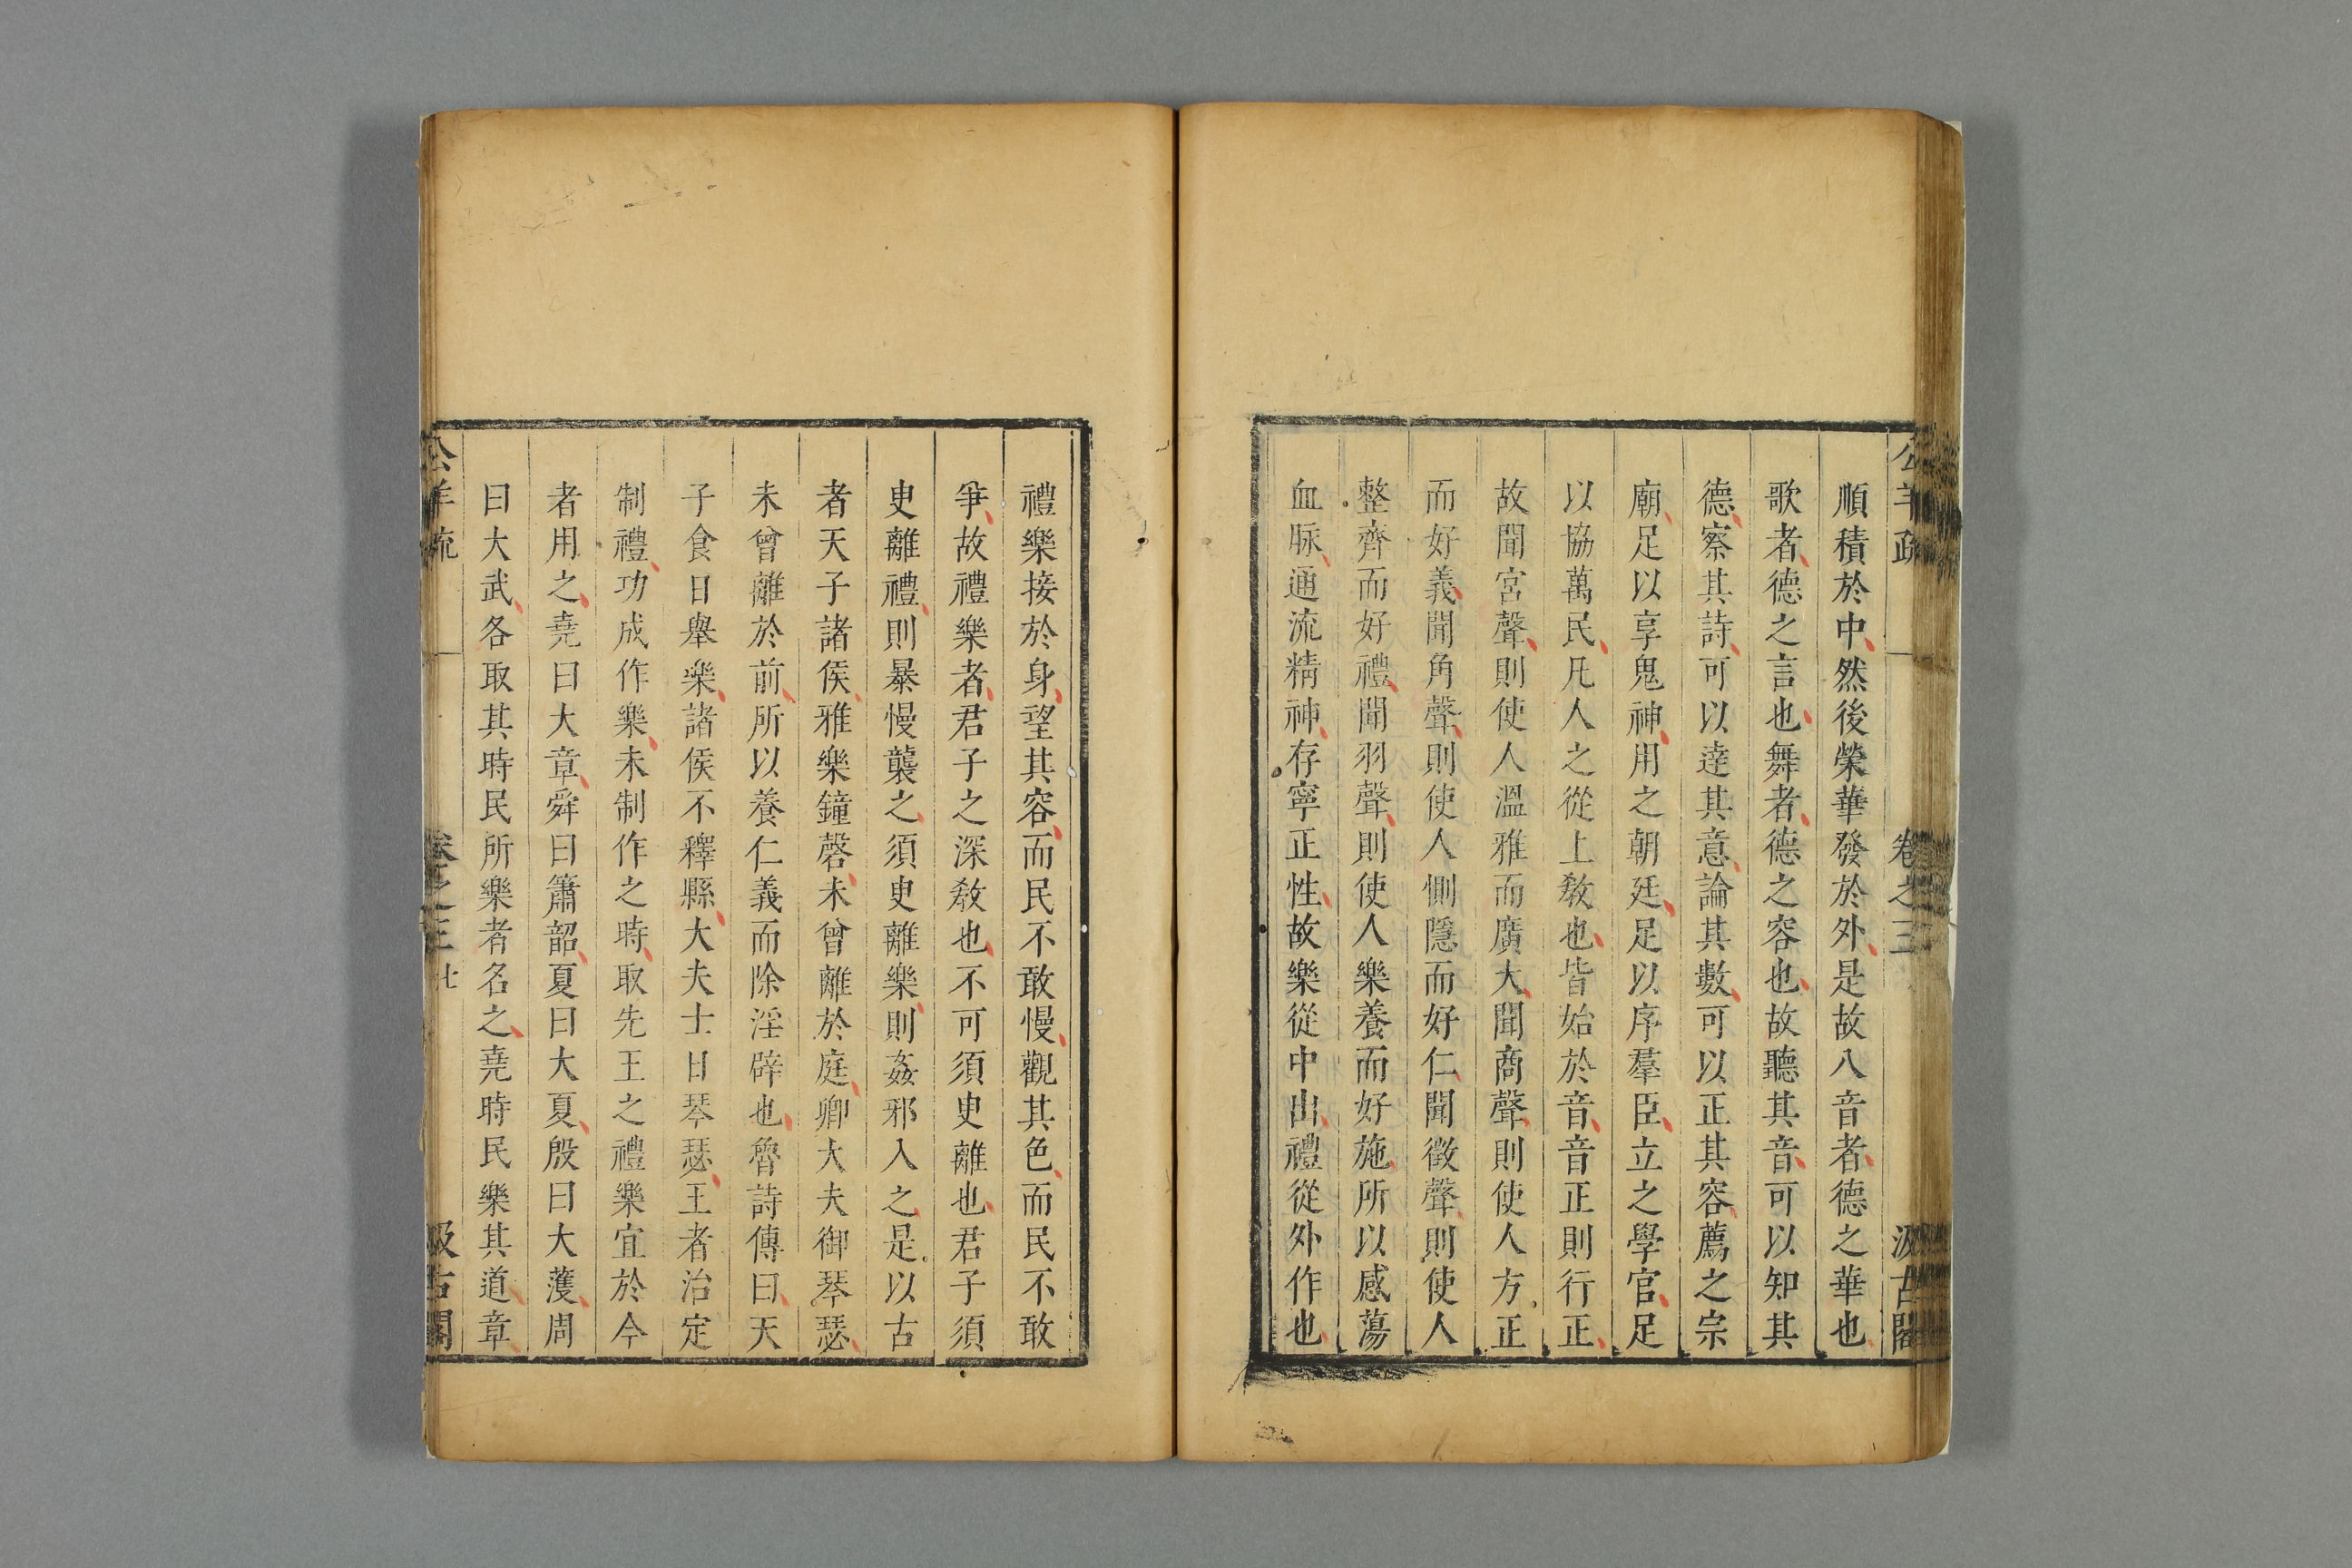 公羊疏 卷之三 汲古閣
順積於中然後榮華發於外是故八音者德之華也
歌者德之言也舞者德之容也故聽其音可以知其
德察其詩可以達其意論其數可以正其容薦之宗
廟足以享鬼神用之朝廷足以序羣臣立之學官足
以協萬民凡人之從上教也皆始於音音正則行正
故聞宮聲則使人溫雅而廣大聞商聲則使人方正
而好義聞角聲則使人惻隱而好仁聞徵聲則使人
整齊而好禮聞羽聲則使人樂養而好施所以感蕩
血脉通流精神存寧正性故樂從中出禮從外作也
禮樂接於身望其容而民不敢慢觀其色而民不敢
爭故禮樂者君子之深教也不可須臾離也君子須
臾離禮則暴慢襲之須臾離樂則姦邪入之是以古
者天子諸侯雅樂鐘磬未曾離於庭卿大夫御琴瑟
未曾離於前所以養仁義而除淫辟也魯詩傳曰天
子食日舉樂諸侯不釋縣大夫士日琴瑟王者治定
制禮功成作樂未制作之時取先王之禮樂宜於今
者用之堯曰大章舜曰簫韶夏曰大夏殷曰大濩周
曰大武各取其時民所樂者名之堯時民樂其道章
公羊疏 卷之三 廿 汲古閣